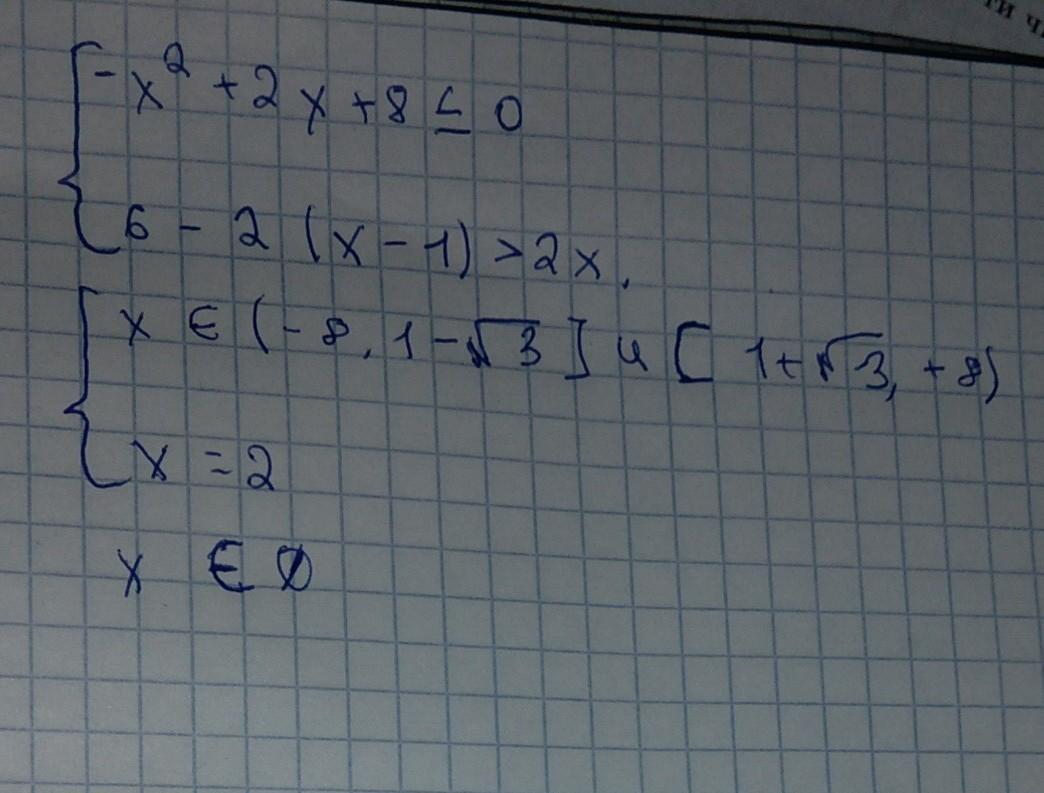 -x² + 2x + 8 ≤ 0
6 - 2 (x - 1) > 2x.
x ∈ (-8, 1 - √3] u [1 + √3, +8)
x = 2
x ∈ Ø